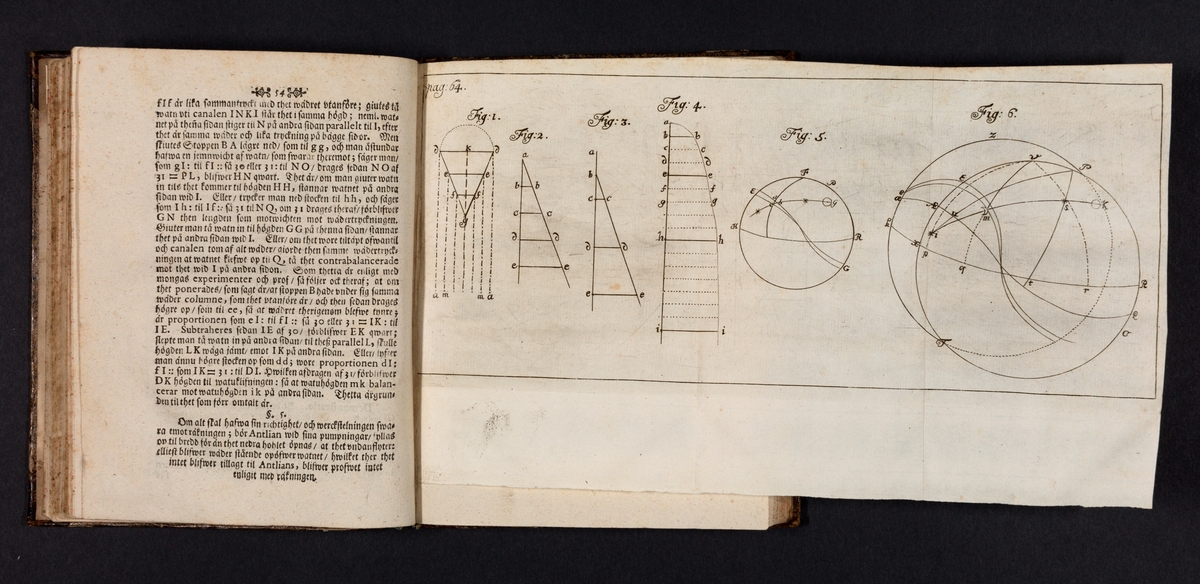 54
fIf är lika sammantryckt med thet wädret vtanföre; giutes tå
watn vti canalen INKI står thet i samma högd; neml. wat-
net på thesa sidan stiger til N på andra sidan parallelt til I, efter
thet är samma wäder och lika tryckning på bägge sidor. Men
skiutes Stoppen BA lägre ned/ som til gg, och man åstundar
hafwa en jemnwicht af watn/ som swarar theremot; säger man/
som gI: til fI:: så 30 eller 31: til NO/ drages sedan NO af
31 = PL, blifwer HN qwart. Thet är/ om man giuter watn
in tils thet kommer til högden HH, stannar watnet på andra
sidan wid I. Eller/ trycker man ned stocken til hh, och säger
som Ih: til If:: så 31 til NQ, om 31 drages theraf/ förblifwer
GN then lengden som motwichten mot wädertryckningen.
Giuter man tå watn in til högden GG på thenna sidan/ stannar
thet på andra sidan wid I. Eller/ om thet wore tiltäpt ofwantil
och canalen tom af alt wäder/ giorde then samme wädertryck-
ningen at watnet kliefwe op til Q, tå thet contrabalancerade
mot thet wid I på andra sidon. Som thetta är enligt med
mongas experimenter och prof/ så följer ock theraf; at om
thet ponerades/ som sagt är/ at stoppen B hade vnder sig samma
wäder columne, som thet vtanföre är/ och then sedan drages
högre op/ som til ee, så at wädret therigenom blefwe tynre;
är proportionen som eI: til fI:: så 30 eller 31 = IK: til
IE. Subtraheres sedan IE af 30/ förblifwer EK qwart;
slepte man tå watn in på andra sidan/ til thess parallel L, skulle
högden LK wäga jämt/ emot IK på andra sidan. Eller/ lyfter
man ännu högre stocken op som dd; wore proportionen dI:
fI:: som IK = 31: til DI. Hwilken afdragen af 31/ förblifwer
DK högden til watuklifningen: så at watuhögden mk balan-
cerar mot watuhögden ik på andra sidan. Thetta är grun-
den til thet som förr omtalt är.
§. 5.
Om alt skal hafwa sin richtighet/ och werckstelningen swa-
ra emot räkningen; bör Antlian wid sina pumpningar/ fyllas
op til bredd för än thet nedra hohlet öpnas/ at thet vndanflyter:
elliest blifwer wäder stående opöfwer watnet/ hwilket ther thet
intet blifwer tillagt til Antlians, blifwer profwet intet
enligit med räkningen.
pag: 64.
Fig: 1.
Fig: 2.
Fig: 3.
Fig: 4.
Fig: 5.
Fig: 6.